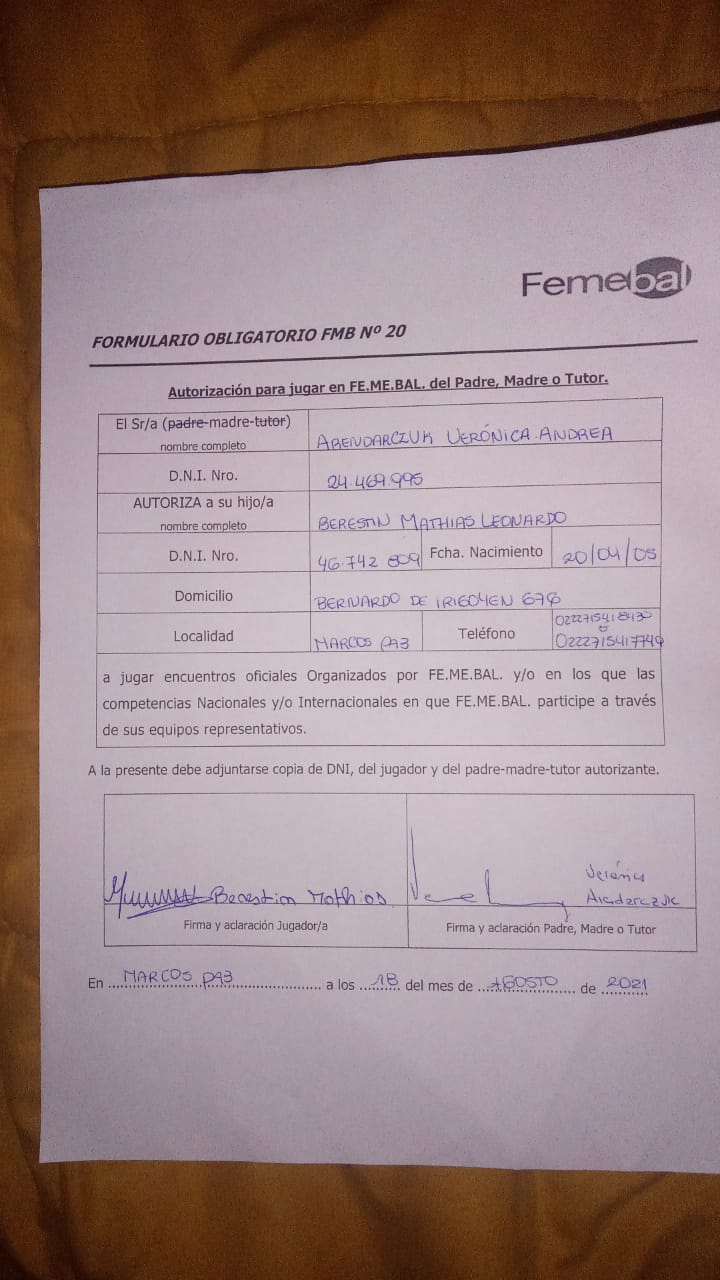 Femebal
FORMULARIO OBLIGATORIO FMB Nº 20
Autorización para jugar en FE.ME.BAL. del Padre, Madre o Tutor.
El Sr/a (padre-madre-tutor)
nombre completo
ARENDARCZUK VERÓNICA ANDREA
D.N.I. Nro.
24.469.995
AUTORIZA a su hijo/a
nombre completo
BERESTIN MATHIAS LEONARDO
D.N.I. Nro.
46.742 809
Fcha. Nacimiento
20/04/05
Domicilio
BERNARDO DE IRIGOYEN 678
Localidad
MARCOS PAZ
Teléfono
022271541
0222715417749
a jugar encuentros oficiales Organizados por FE.ME.BAL. y/o en los que las
competencias Nacionales y/o Internacionales en que FE.ME.BAL. participe a través
de sus equipos representativos.
A la presente debe adjuntarse copia de DNI, del jugador y del padre-madre-tutor autorizante.
Berestin Mathias
Verónica
Firma y aclaración Jugador/a
Firma y aclaración Padre, Madre o Tutor
En MARCOS PAZ a los 18 del mes de AGOSTO de 2021